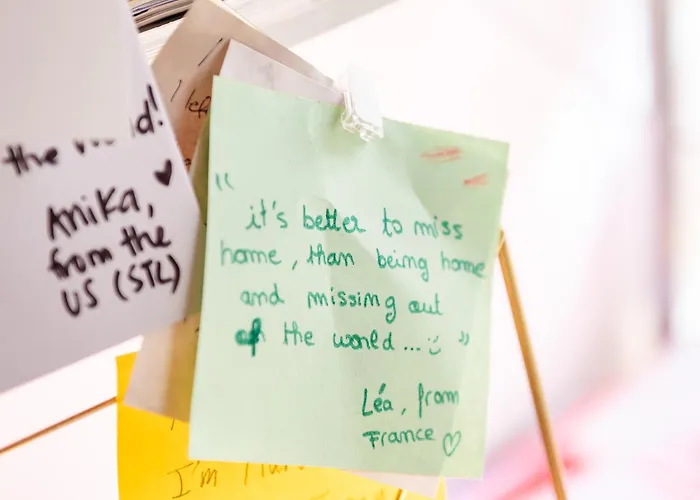 the
Anika,
from the
US (STL)
left
"it's better to miss
home, than being home
and missing out
of the world... "
Léa, from
France
I'm